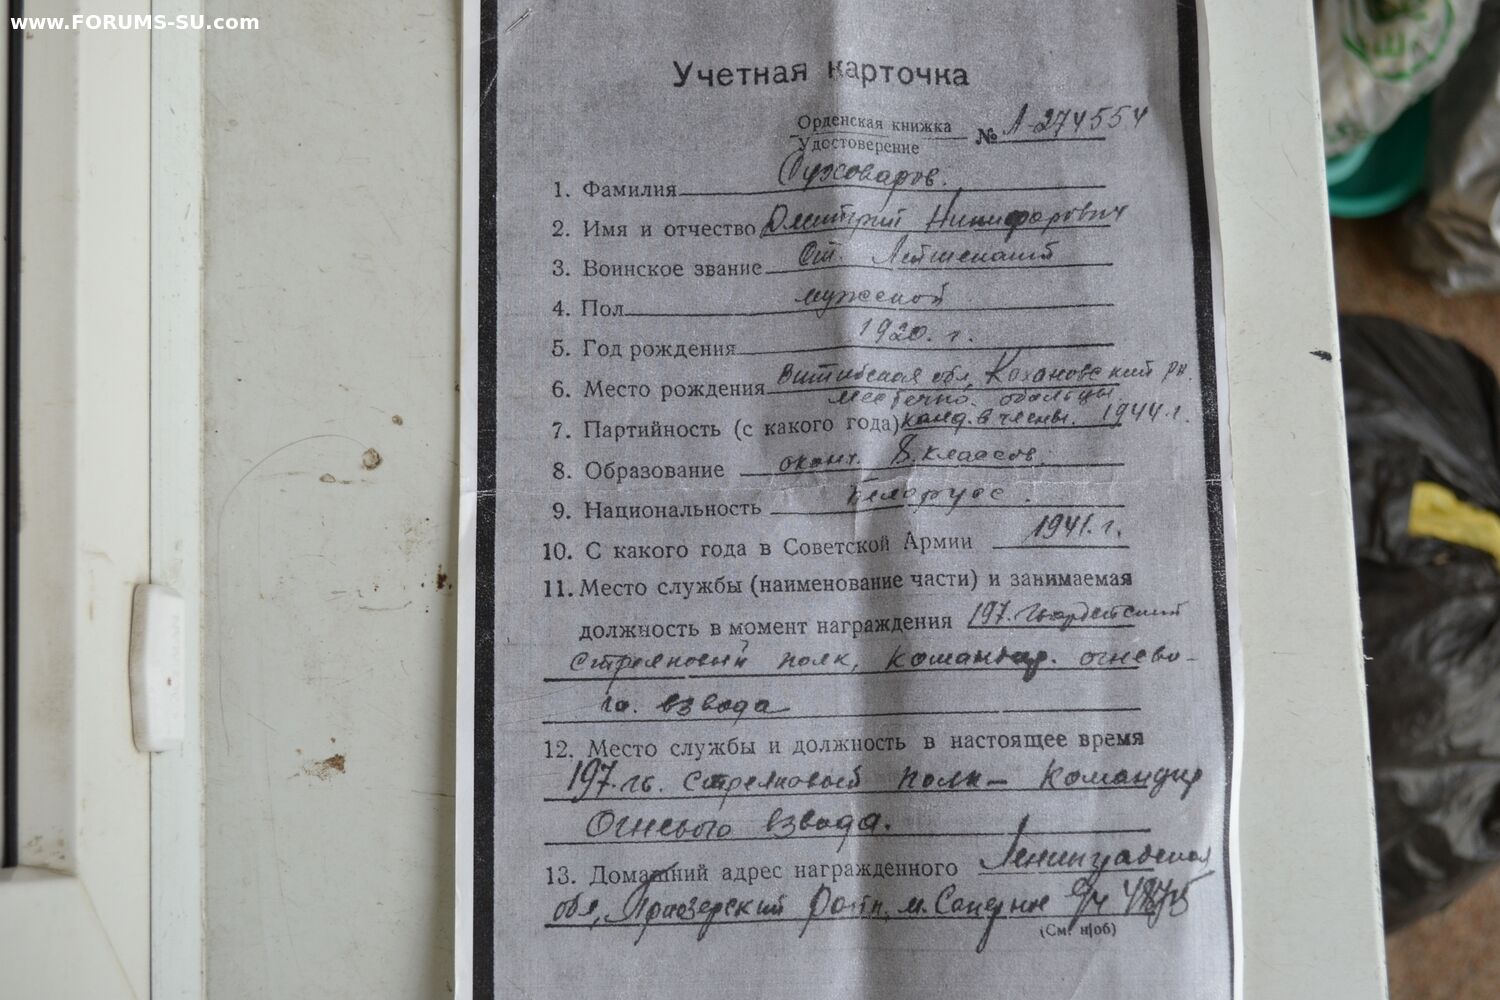 www.FORUMS-SU.com
Учетная карточка
Орденская книжка
Удостоверение № Л-274554
1. Фамилия Суховаров.
2. Имя и отчество Дмитрий Никифорович
3. Воинское звание Ст. Лейтенант
4. Пол мужской
5. Год рождения 1920. г.
6. Место рождения Витебская обл, Кохановский рн.
местечко. обольцы
7. Партийность (с какого года) канд. в члены. 1944 г.
8. Образование оконч. 8 классов.
9. Национальность белорус.
10. С какого года в Советской Армии 1941. г.
11. Место службы (наименование части) и занимаемая
должность в момент награждения 197. гвардейский
стрелковый полк, командир. огнево-
го. взвода
12. Место службы и должность в настоящее время
197. гв. стрелковый полк - командир
Огневого взвода.
13. Домашний адрес награжденного Ленинградская
обл, Приозерский м. п/я
(См. н/об)